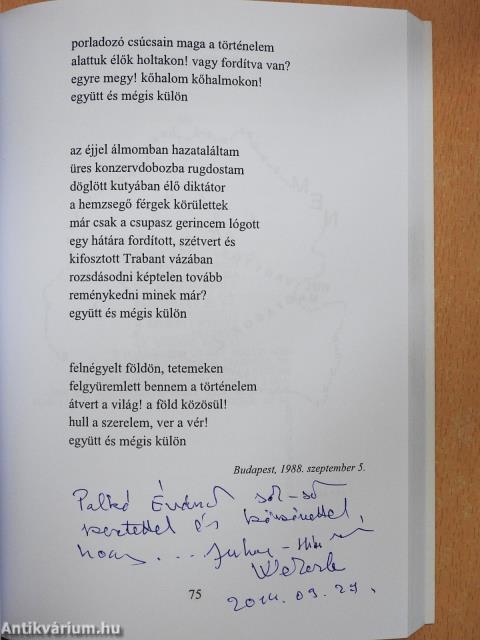 porladozó csúcsain maga a történelem
alattuk élők holtakon! vagy fordítva van?
egyre megy! kőhalom kőhalmokon!
együtt és mégis külön
az éjjel álmomban hazataláltam
üres konzervdobozba rugdostam
döglött kutyában élő diktátor
a hemzsegő férgek körülettek
már csak a csupasz gerincem lógott
egy hátára fordított, szétvert és
kifosztott Trabant vázában
rozsdásodni képtelen tovább
reménykedni minek már?
együtt és mégis külön
felnégyelt földön, tetemeken
felgyüremlett bennem a történelem
átvert a világ! a föld közösül!
hull a szerelem, ver a vér!
együtt és mégis külön
Budapest, 1988. szeptember 5.
Palkó Évának sok-sok
szeretettel és köszönettel,
75
2014. 09. 27.
Antikvárium.hu